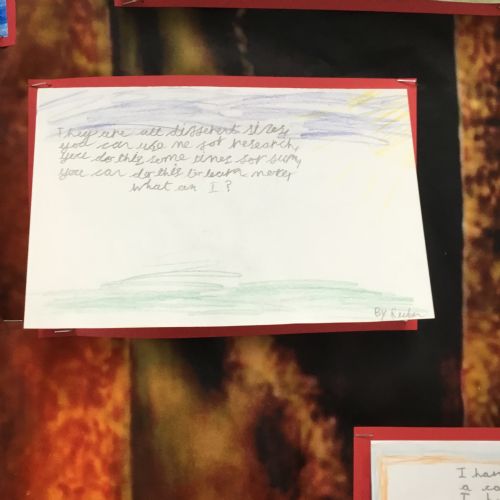 They are all different sizes,
you can use me for research,
you do this some times for fun,
you can do this to learn more,
What am I ?
By
I han
a co